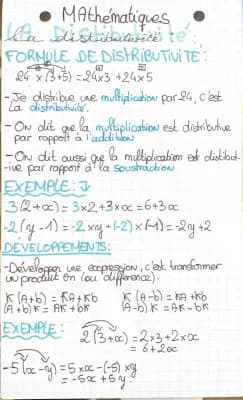 MAthématiques
La distributivité :
FORMULE DE DISTRIBUTIVITE :
24 x (3+5) = 24x3 + 24x5
-Je distribue une multiplication par 24, c'est
la distributivité.
-On dit que la multiplication est distributive
par rapport à l'addition
-On dit aussi que la multiplication est distribut-
-ive par rapport à la soustraction
EXEMPLE :
3(2+x) = 3x2+3xx = 6+3x
-2(y-1) = -2xy+(-2)x(-1) = -2y+2
DEVELOPPEMENTS :
-Développer une expression, c'est transformer
un produit en (ou différence).
K(A+b) = KA+Kb K(A-b) = KA+Kb
(A+b)K = AK+bK (A-b)K = AK-bK
EXEMPLE : 2(3+x) = 2x3+2xx
= 6+2x
-5(x-y) = 5xx-(-5)xy
= -5x+5y.